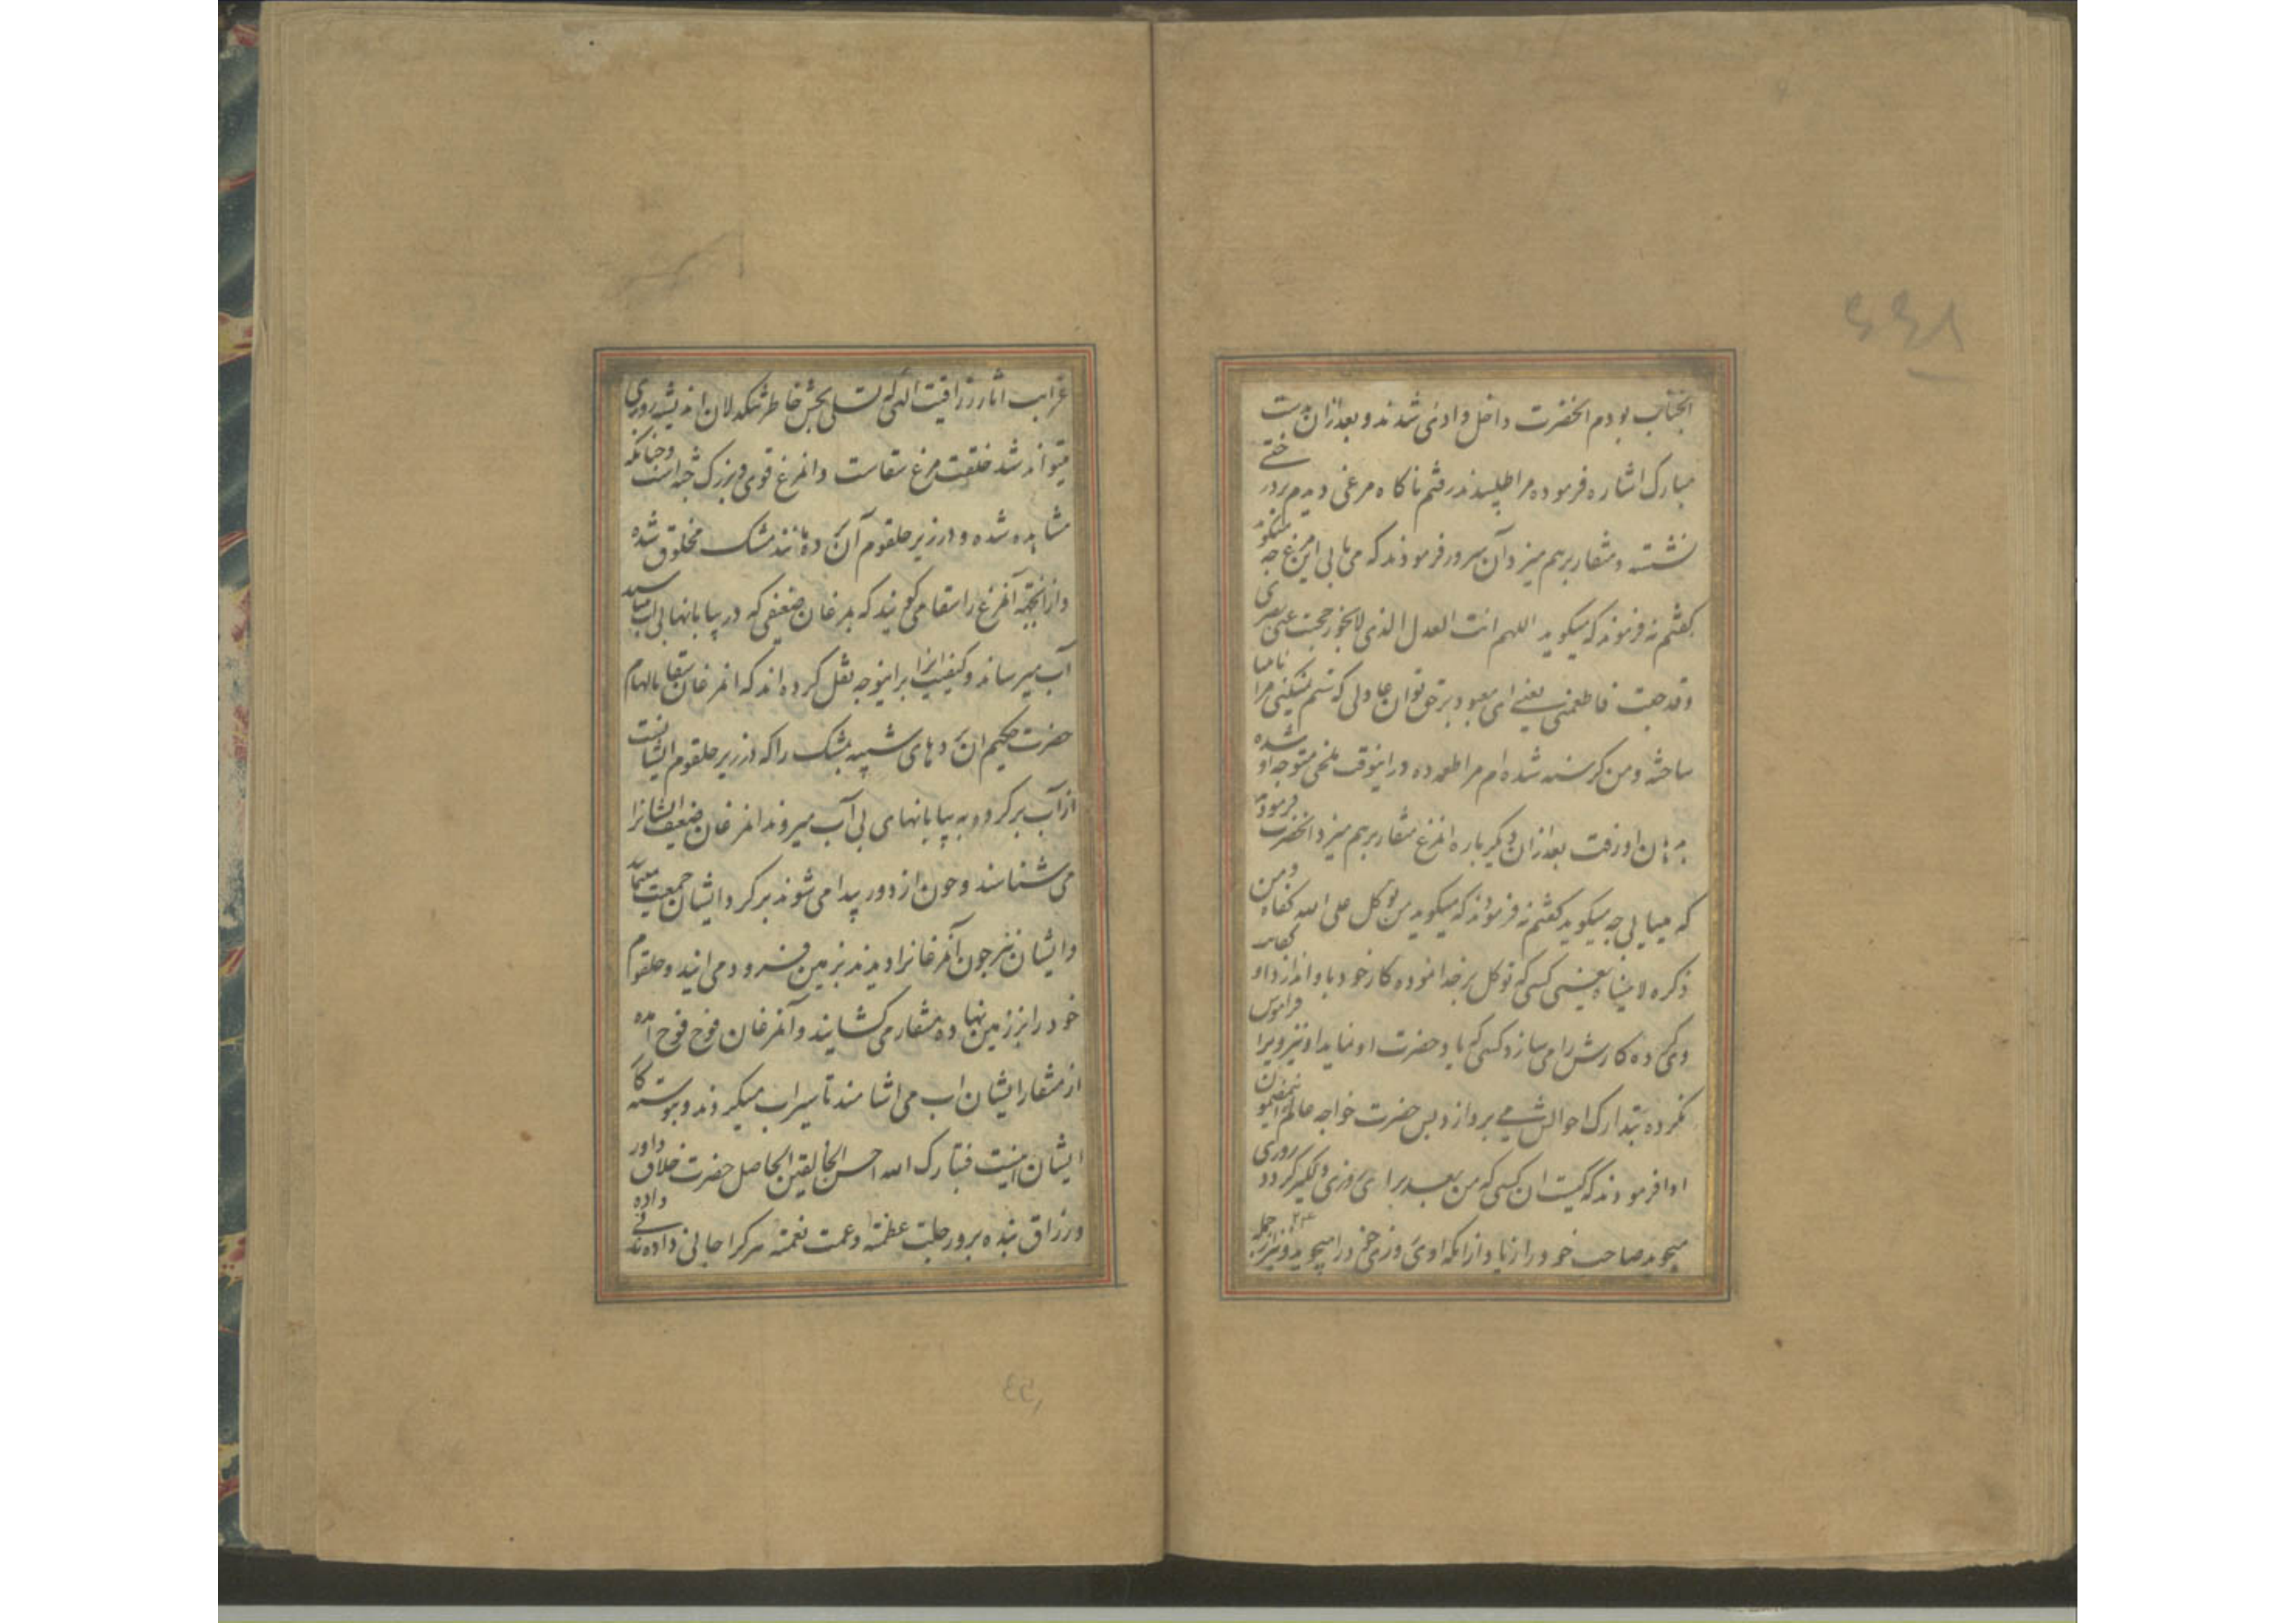 آنجناب بودم انحضرت داخل وادی شدند و بعد ازان بدست
مبارک اشاره فرموده مرا طلبیدند رفتم ناکاه مرغی دیدم بر درختی
نشسته و منقار بر هم میزد آن سرور فرمودند که می یابی این مرغ چه میکوید
کفتم نه فرمودند که میکوید اللهم انت العدل الذی لا یجور حجبت عنی بصری
وقد جعت فاطعمنی یعنی ای معبود برحق توان عادلی که ستم نمیکنی مرا نابینا
ساخته و من کرسنه شده ام مرا طعمه ده در اینوقت ملخی متوجه او شده
بدهان او رفت بعد ازان دیکر باره انمرغ منقار بر هم میزد انحضرت فرمودند
که میابی چه میکوید کفتم نه فرمودند که میکوید من توکل علی الله کفاه و من
ذکره لا ینساه یعنی کسی که توکل بر خدا نموده کار خود با و اندازد او کفایت
وی کرده کارش را می سازد و کسی که یاد حضرت او نماید او نیز ویرا فراموش
نکرده بتدارک احوالش می پردازد پس حضرت خواجه عالم
اوا فرمودند که کیست ان کسی که من بعد برای روزی دلکیر کردد روزی
میجوید صاحب خود را زیاد از انکه او روزی خود را میجوید و نیز از جمله
۶۶۱
غرایب اثار رزاقیت الهی که تسلی بخش خاطر تنکدلان اندیشه روزی
میتواند شد خلقت مرغ سقاست و انمرغ قوی و بزرک جثه است و چنانکه
مشاهده شده و در زیر حلقوم آن کرده مانند مشک مخلوق شده
و از انجهة آنمرغ را سقا می کویند که بمرغان ضعیفی که در بیابانهای بی آب میباشند
آب میرساند و کیفیت انرا براینوجه نقل کرده اند که انمرغان سقا بالهام
حضرت حکیم ان کردهای شبیه بمشک را که در زیر حلقوم ایشانست
از آب پر کرده به بیابانهای بی آب میروند انمرغان ضعیف ایشانرا
می شناسند و چون از دور پیدا می شوند بر کرد ایشان جمعیت مینمایند
و ایشان نیز چون آنمرغانرا دیدند بزمین فرود می ایند و حلقوم
خود را بر زمین نهاده منقار می کشایند و آنمرغان فوج فوج امده
از منقار ایشان اب می اشامند تا سیراب میکردند و پیوسته کار
ایشان اینست فتبارک الله احسن الخالقین الحاصل حضرت خلاق داور
و رزاق بنده پرور جلت عظمته و عمت نعمته هر کرا جانی داده
53